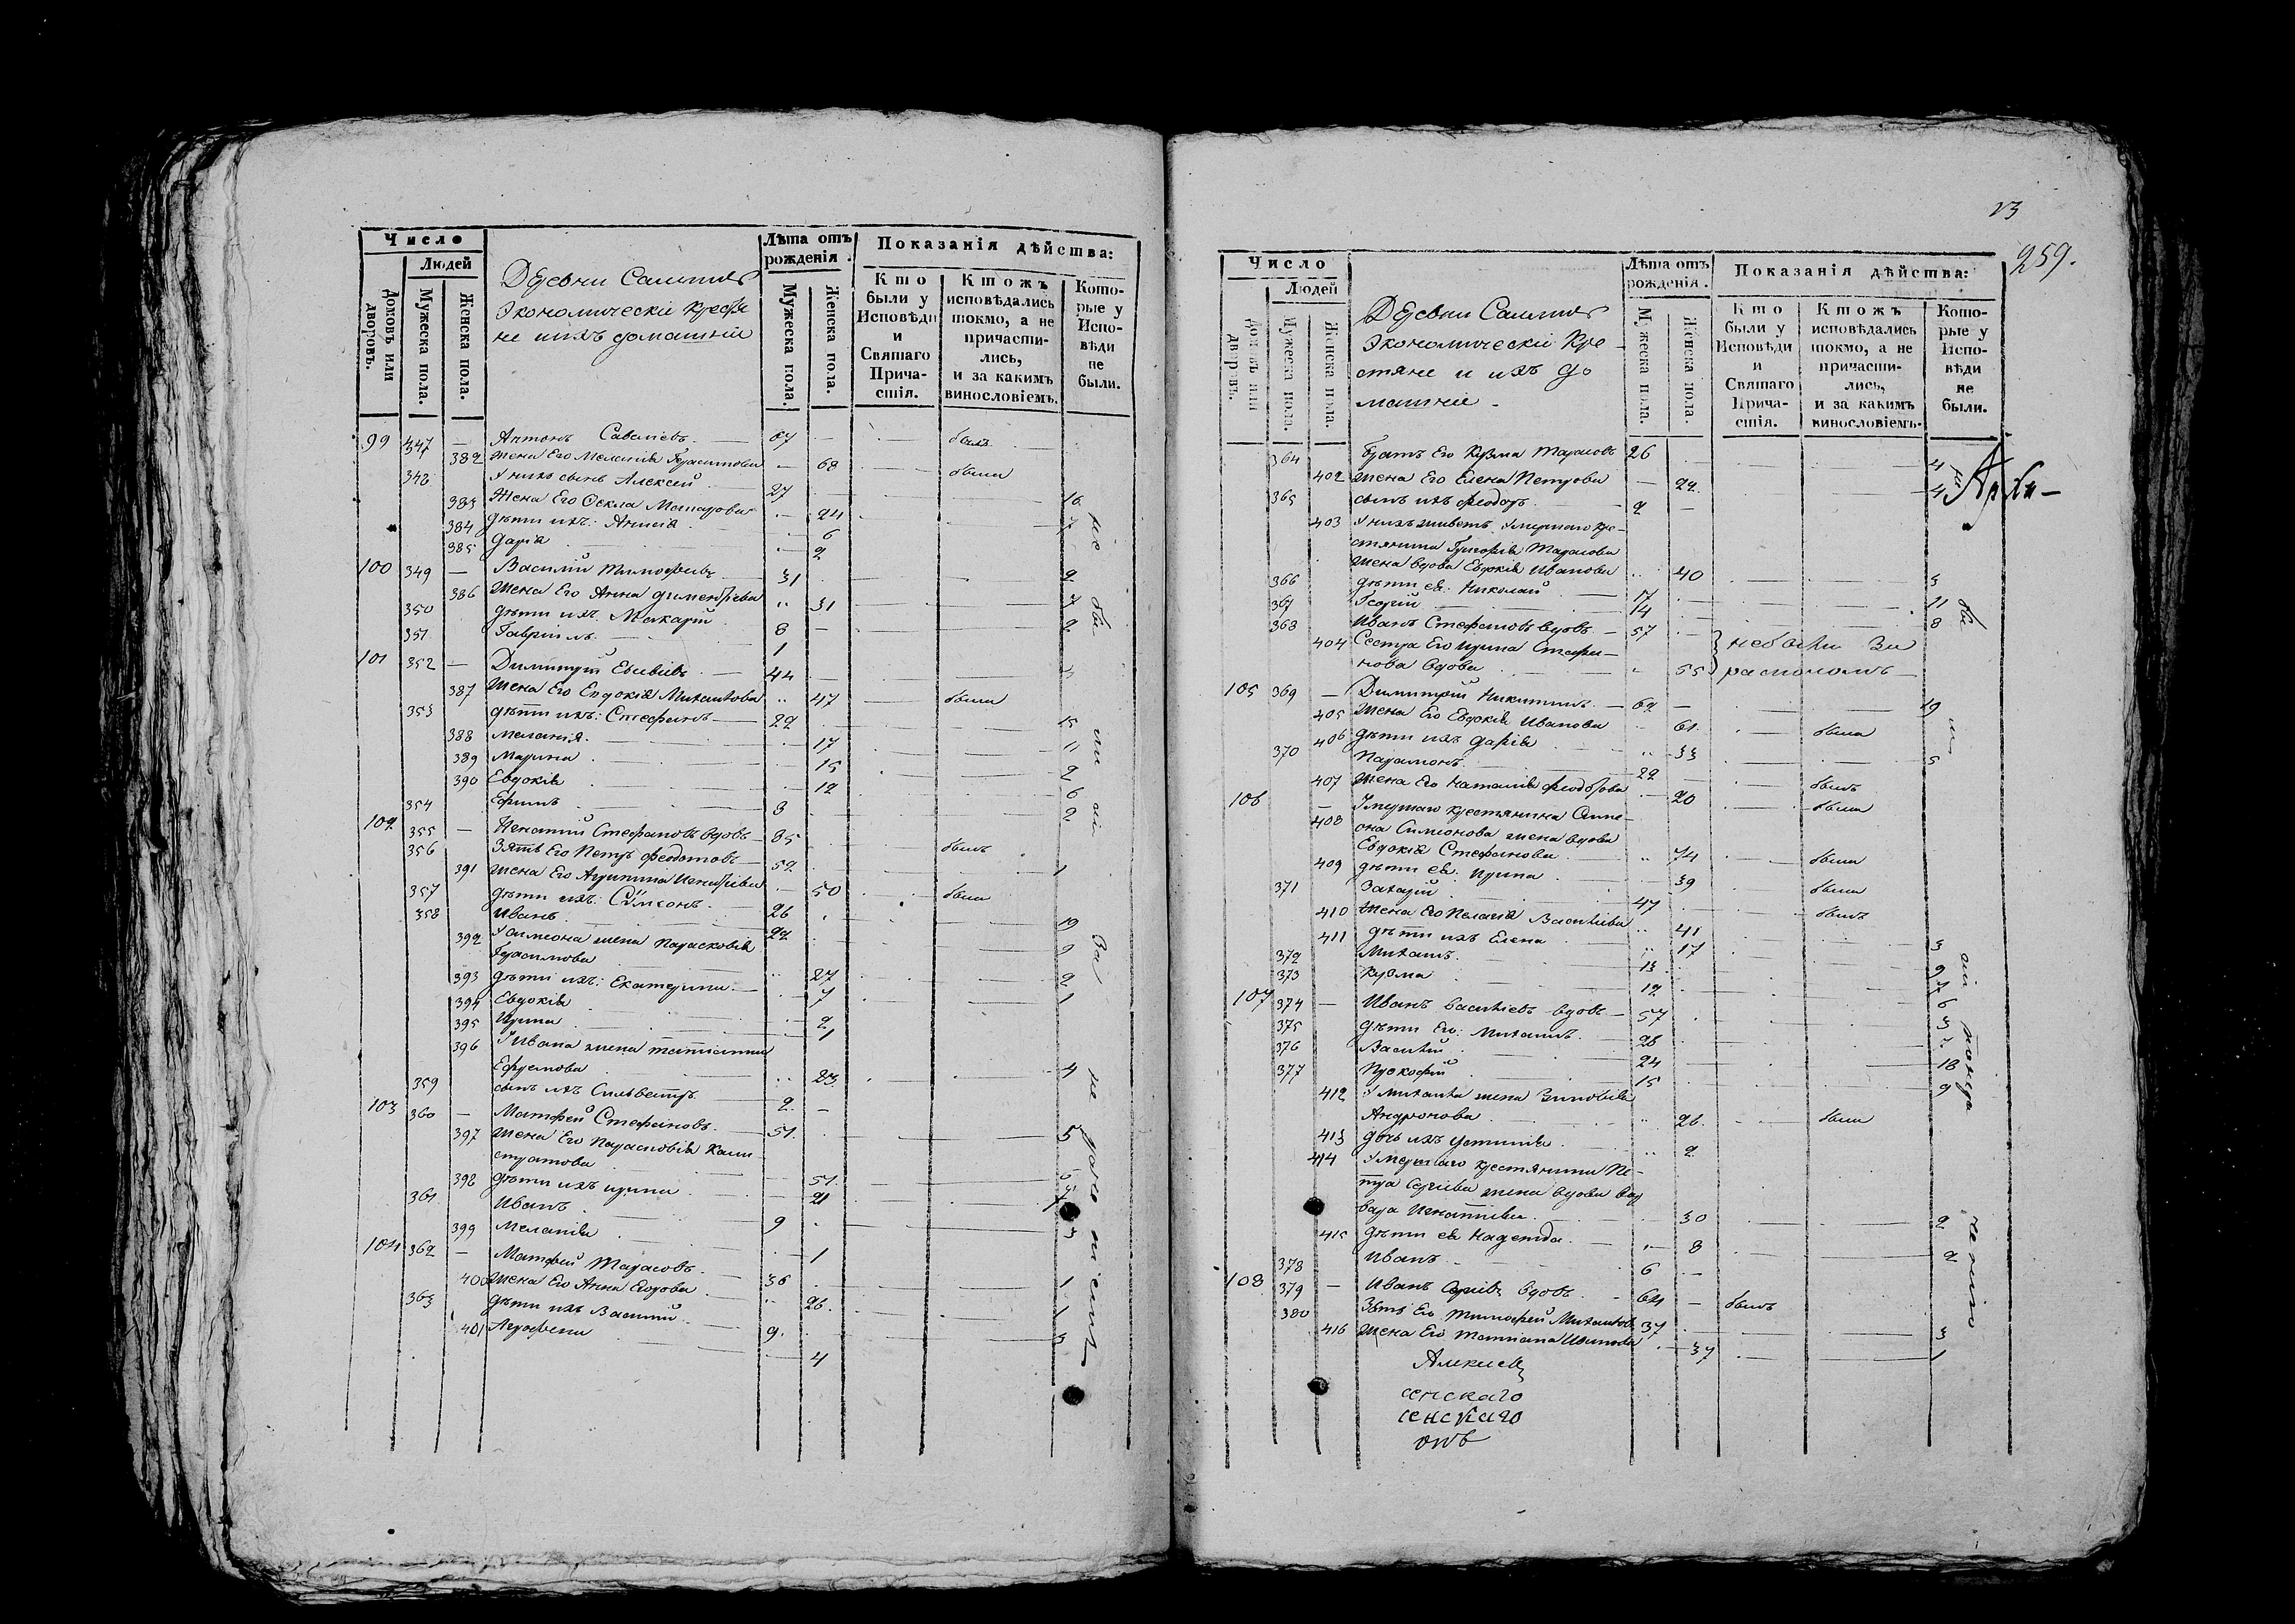 Число
Людей
Домовъ или дворовъ.
Мужеска пола.
Женска пола.
Деревни
Экономическіе крестья
не и ихъ домашніе
Лѣта отъ рожденія.
Мужеска пола.
Женска пола.
Показанія дѣйства:
Кто были у Исповѣди и Святаго Причастія.
Ктожъ исповѣдались токмо, а не причастились, и за какимъ винословіемъ.
Которые у Исповѣди не были.
99 347 — Антонъ Савельевъ 67 былъ
382 жена Его Меланія Герасимова 68 была
348 У нихъ сынъ Алексей 27 16
383 Жена Его Фекла 24 7
384 дѣти ихъ: Анисія 6
385 Дарія 2
100 349 — Василий Тимофеевъ 31 2
386 Жена Его Анна Димитріева 31 7
350 дѣти ихъ Макарій 8 2
351 Гавріилъ 1
101 352 — Димитрій 44
387 жена Его Евдокія Михайлова 47 была
353 дѣти ихъ: Стефанъ 22 15
388 Меланія 17 11
389 Марина 15 2
390 Евдокія 12 6
354 Ефимъ 8 2
102 355 — Игнатий Стефановъ вдовъ 85 былъ
356 Зять Его Петръ Феодотовъ 52 1
391 жена Его Агрипина 50 была
357 дѣти ихъ: Симеонъ 26 19
358 Иванъ 22 9
392 У Симеона жена Парасковія
Герасимова 27 2
393 дѣти ихъ: Екатерина 7 1
394 Евдокія 2
395 Ирина 1
396 У Ивана жена Татианна
Ефремова 23 4
359 сынъ ихъ Сильвестръ 2
103 360 — Матфей Стефановъ 51 5
397 жена Его Парасковія
51
398 дѣти ихъ Ирина 21
361 Иванъ 9 3
399 Меланія 1
104 362 — Матфей Тарасовъ 36 1
400 жена Его Анна Егорова 26 1
363 дѣти ихъ Василий 9 3
401 Агрофена 4
23
259.
Число
Людей
Домовъ или дворовъ.
Мужеска пола.
Женска пола.
Деревни
Экономическіе Кре
стяне и ихъ до
машніе
Лѣта отъ рожденія.
Мужеска пола.
Женска пола.
Показанія дѣйства:
Кто были у Исповѣди и Святаго Причастія.
Ктожъ исповѣдались токмо, а не причастились, и за какимъ винословіемъ.
Которые у Исповѣди не были.
364 Братъ Его Кузма Тарасовъ 26 4
402 жена Его Елена Петрова 22 4
365 сынъ ихъ Феодоръ 2
403 У нихъ живетъ Умершаго кре-
стянина Григорія Тарасова
жена вдова Евдокія Иванова 40 3
366 дѣти ея: Николай 17 11
367 Георгій 14 8
368 Иванъ Стефановъ вдовъ 57
404 Сестра Его Ирина Стефа-
нова вдова 55
небыли За
расколомъ
105 369 — Димитрій Никитинъ 62 19
405 жена Его Евдокія Иванова 61 была
406 дѣти ихъ Дарія 33 5
370 Парамонъ 22 былъ
407 жена Его Наталія Феодорова 20 была
106 —
408 Умершаго крестянина Симе-
она Симионова жена вдова
Евдокія Стефанова 74 была
409 дѣти ея: Ирина 39 была
371 Захарій 47 былъ
410 жена Его Пелагія Васильева 41 3
411 дѣти ихъ Елена 17 9
372 Михаилъ 13 7
373 Кузма 12 6
107 374 — Иванъ Васильевъ вдовъ 57 3
375 дѣти Его: Михаилъ 28
376 Василий 24 18
377 Прокофій 15 9
412 У Михаила жена Зиновія
Андронова 26 была
413 дочь ихъ Устинія 2
414 Умершаго крестянина Пе-
тра Сергіева жена вдова Вар
вара Игнатіева 30 2
415 дѣти ея Надежда 8 2
378 Иванъ 6
108 379 — Иванъ вдовъ 64 былъ
380 Зять Его Тимофей Михайловъ 37 3
416 жена Его Татиана Иванова 37 1